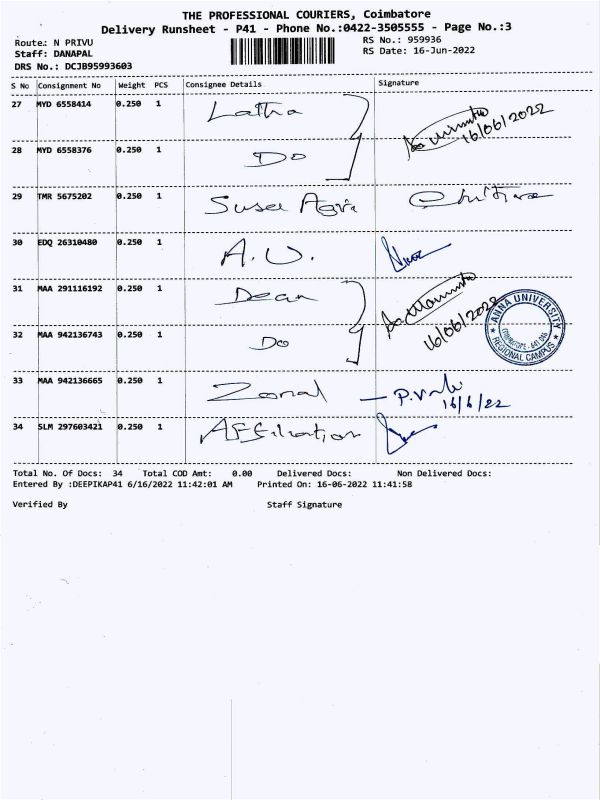 THE PROFESSIONAL COURIERS, Coimbatore
Delivery Runsheet - P41 - Phone No.:0422-3505555 - Page No.:3
Route: N PRIVU RS No.: 959936
Staff: DANAPAL RS Date: 16-Jun-2022
DRS No.: DCJB95993603
S No Consignment No Weight PCS Consignee Details Signature
27 MYD 6558414 0.250 1 Latha
16/06/2022
28 MYD 6558376 0.250 1 Do
29 TMR 5675202 0.250 1
30 EDQ 26310480 0.250 1 A.U.
31 MAA 291116192 0.250 1 Dean
16/06/2022
ANNA UNIVERSITY
REGIONAL CAMPUS
32 MAA 942136743 0.250 1 Do
33 MAA 942136665 0.250 1 Zonal
16/6/22
34 SLM 297603421 0.250 1 Affiliation
Total No. Of Docs: 34 Total COD Amt: 0.00 Delivered Docs: Non Delivered Docs:
Entered By :DEEPIKAP41 6/16/2022 11:42:01 AM Printed On: 16-06-2022 11:41:58
Verified By Staff Signature